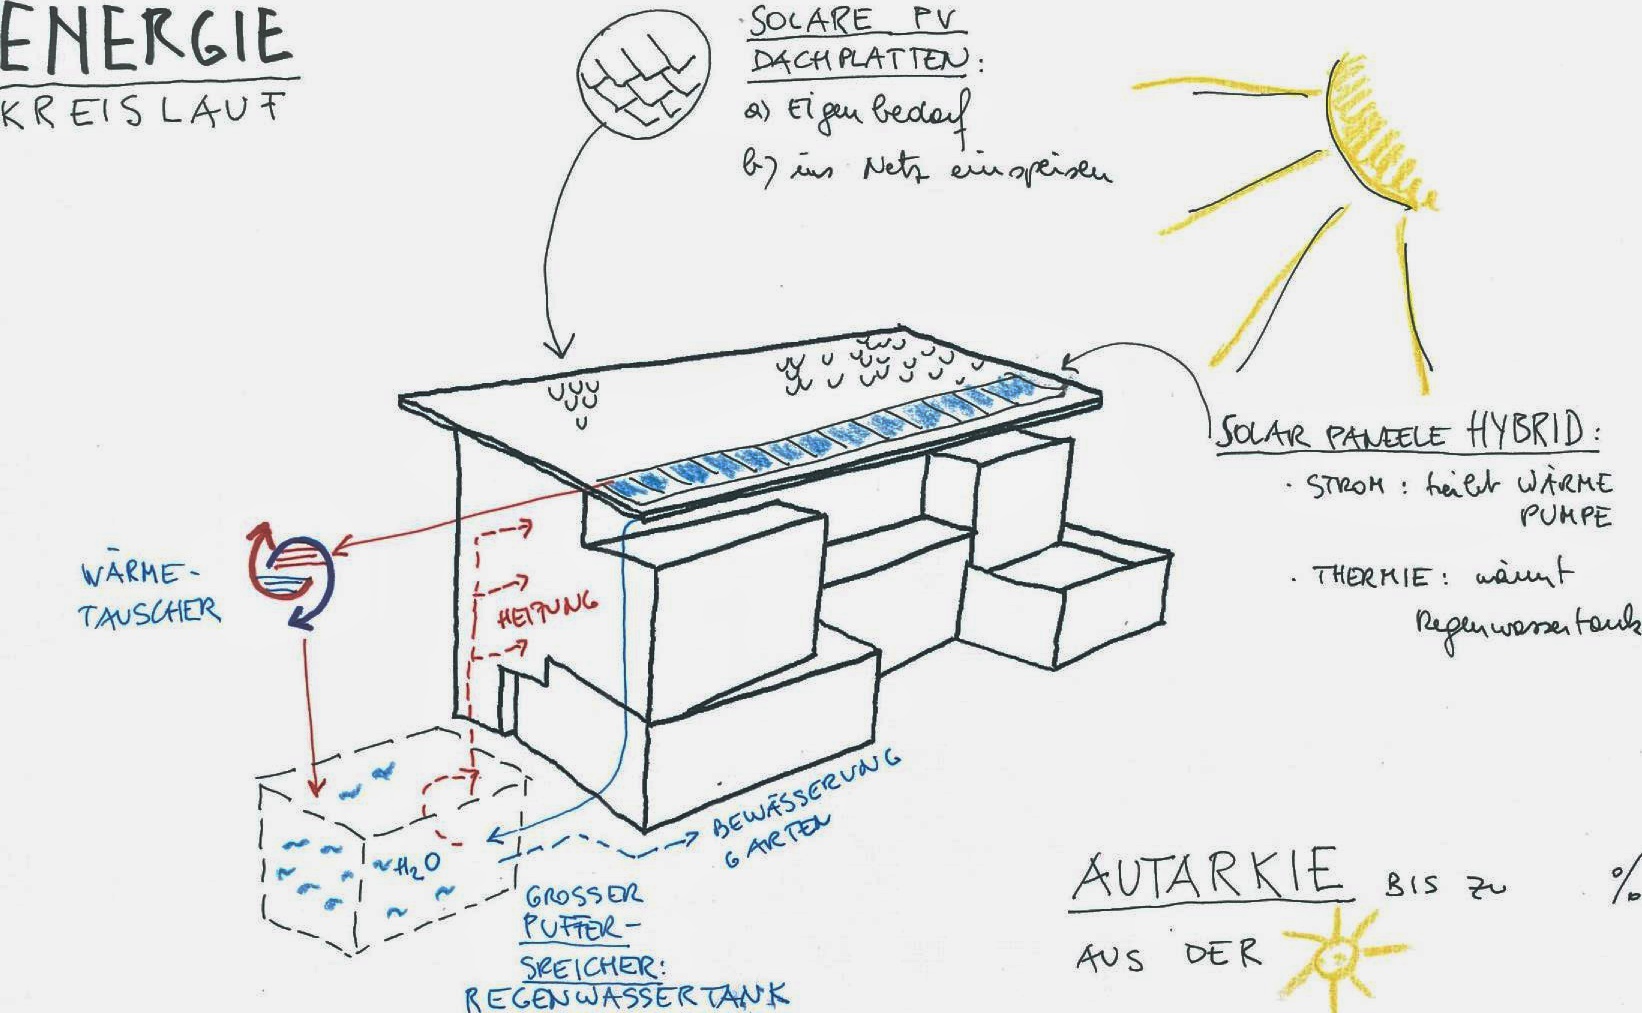 ENERGIE
KREISLAUF
SOLARE PV
DACHPLATTEN:
a) Eigenbedarf
b) ins Netz einspeisen
SOLAR PANEELE HYBRID:
· STROM: treibt WÄRME
PUMPE
· THERMIE: wärmt
Regenwassertank
WÄRME-
TAUSCHER
HEITUNG
H2O
BEWÄSSERUNG
GARTEN
GROSSER
PUFFER-
SREICHER:
REGENWASSERTANK
AUTARKIE BIS ZU %
AUS DER